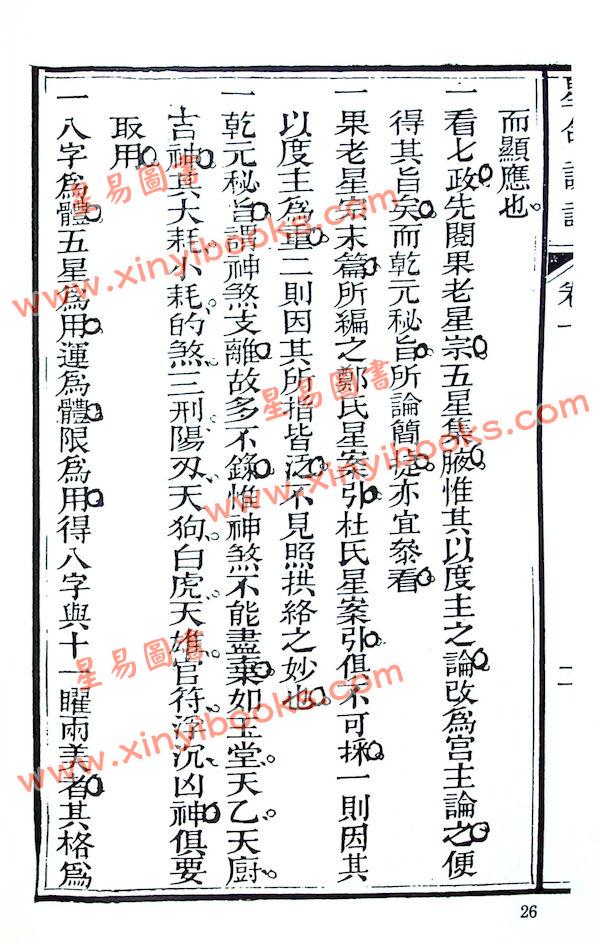 而顯應也。
一看七政先閱果老星宗五星集腋惟其以度主之論改為宮主論之便
得其旨矣而乾元秘旨所論簡捷亦宜叅看
一果老星宗末篇所編之鄭氏星案引杜氏星案引俱不可採一則因其
以度主為重二則因其所指皆泛不見照拱絡之妙也
一乾元秘旨謂神煞支離故多不錄惟神煞不能盡棄如玉堂天乙天厨
吉神與大耗小耗的煞三刑陽刃天狗白虎天雄官符浮沉凶神俱要
取用
一八字為體五星為用運為體限為用得八字與十一曜兩美者其格為
卷一
26
星易圖書
www.xinyibooks.com
星易圖書
www.xinyibooks.com
星易圖書
www.xinyibooks.com